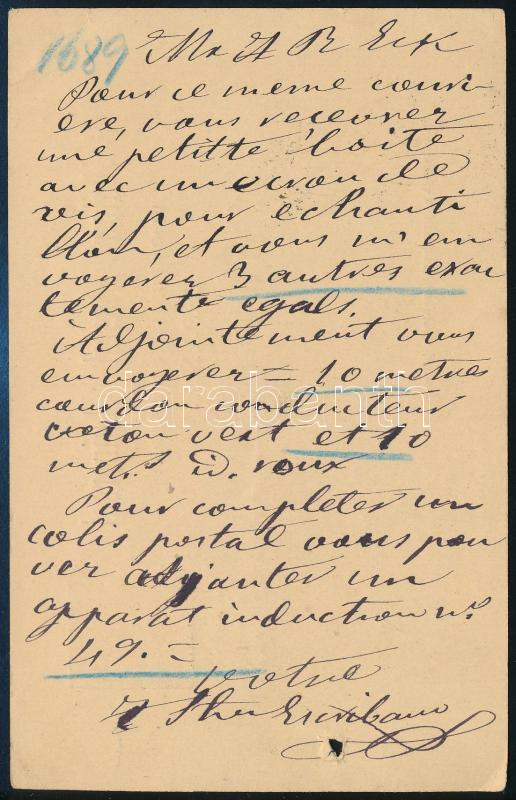 1689
Mr A B Eck
Pour ce meme couri
ere, vous recevrez
une petitte boite
avec un ecrou de
vis, pour echanti
llon, et vous m'en
voyerez 3 autres exac
tements egals.
Adjointement vous
envoyerez = 10 metres
courdon conducteur
coton vert et 10
met.s id. roux
Pour completer un
colis postal vous pou
vez adjanter un
apparat induction nº
49. =
votre
darabanth